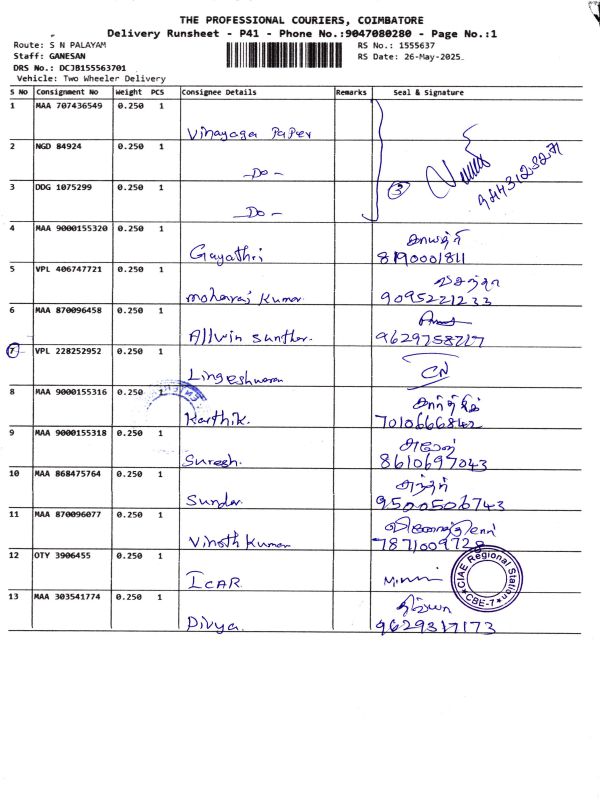 THE PROFESSIONAL COURIERS, COIMBATORE
Delivery Runsheet - P41 - Phone No.:9047080280 - Page No.:1
Route: S N PALAYAM
RS No.: 1555637
Staff: GANESAN
RS Date: 26-May-2025
DRS No.: DCJB155563701
Vehicle: Two Wheeler Delivery
S No Consignment No Weight PCS Consignee Details Remarks Seal & Signature
1 MAA 707436549 0.250 1
Vinayaga Paper
2 NGD 84924 0.250 1
-Do-
3 DDG 1075299 0.250 1
-Do-
3
4 MAA 9000155320 0.250 1
காயத்ரி
Gayathri 8190001811
5 VPL 406747721 0.250 1
வசந்தா
mohanraj Kumar 9095221233
6 MAA 870096458 0.250 1
Allvin Sunthar. 9629758717
7 VPL 228252952 0.250 1
Lingeshwaran
8 MAA 9000155316 0.250 1
கார்த்திக்
Karthik. 7010666842
9 MAA 9000155318 0.250 1
Suresh. 8610697043
10 MAA 868475764 0.250 1
Sundar 9500506743
11 MAA 870096077 0.250 1
Vinoth Kumar 7871009728
12 OTY 3906455 0.250 1
ICAR.
CIAE Regional Station
CBE-7
13 MAA 303541774 0.250 1
திவ்யா
Divya. 9629317173